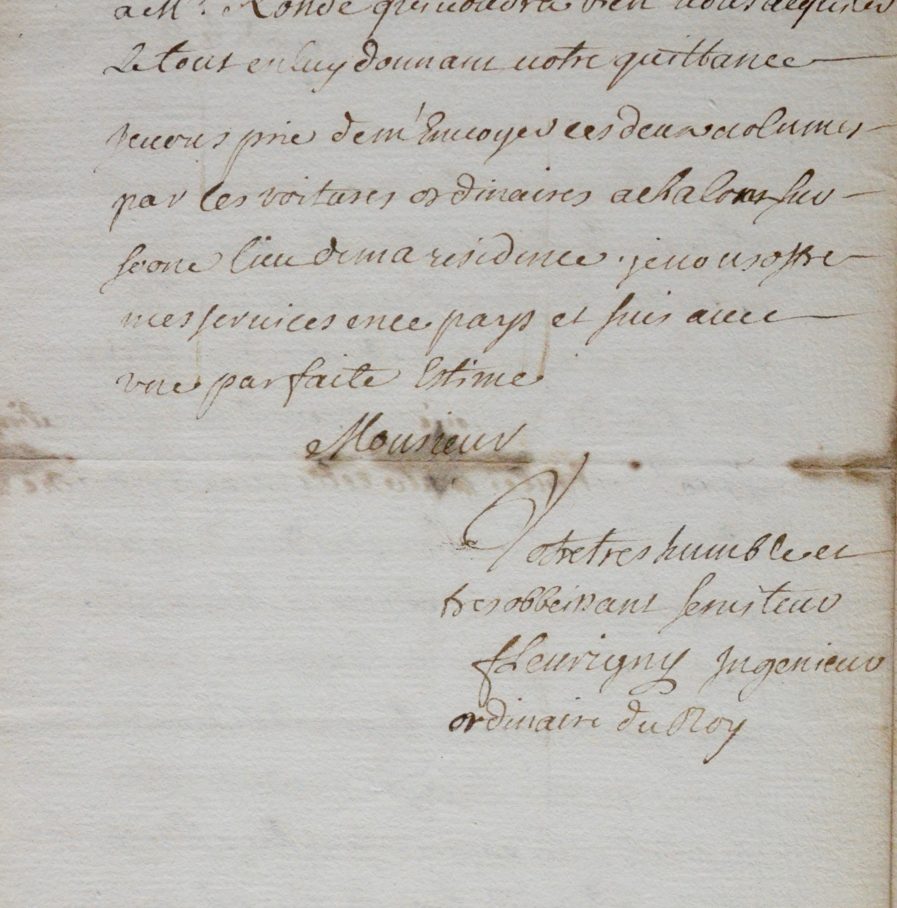 a Mr. Ronde qui voudra bien vous acquiter
Le tout en luy donnant votre quittance
Je vous prie de m'Envoyer ces deux volumes
par les voitures ordinaires a chalons sur
soone lieu de ma residence. je vous offre
mes services en ce pays et suis avec
une parfaite Estime
Monsieur
Votre tres humble et
tres obbeissant serviteur
fleurigny Ingenieur
ordinaire du Roy